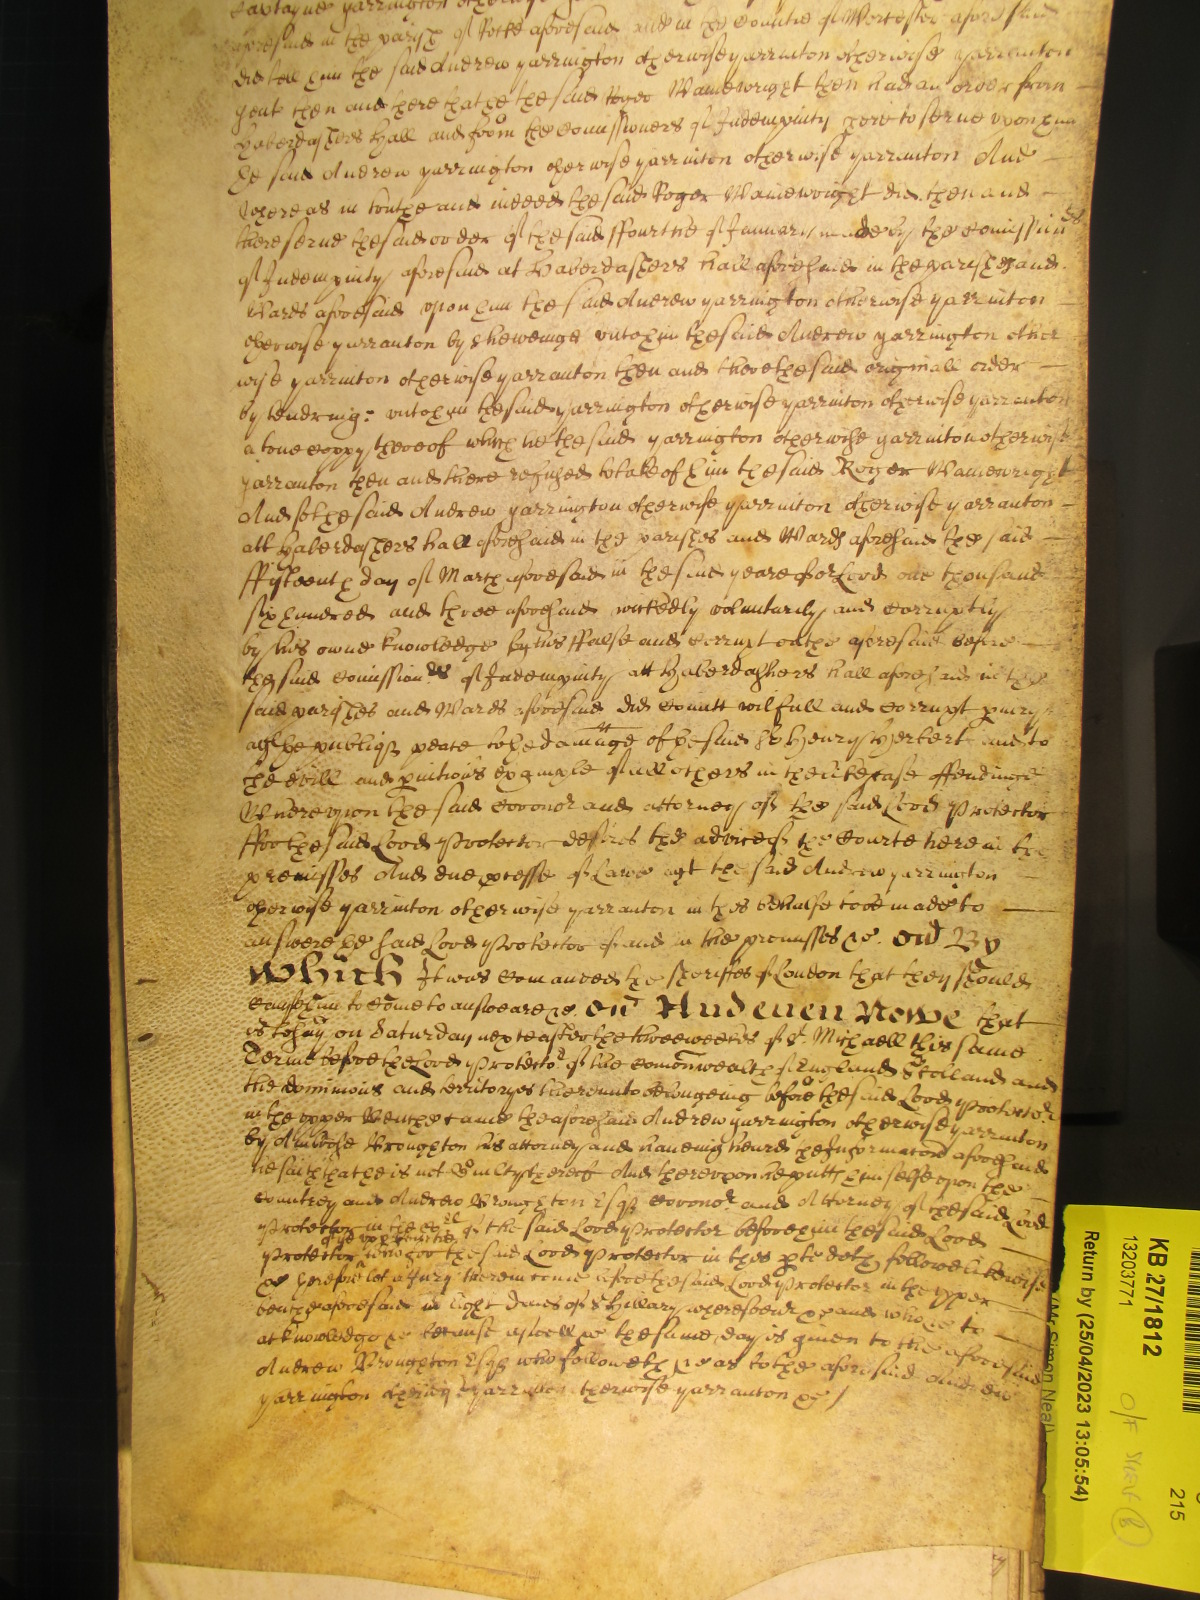 Captayne yarrington otherwise
aforesaid in the parish of Rocke aforesaid and in the Countie of Worcester aforesaid
did tell him the said Andrew yarrington otherwise yarrinton otherwise yarranton
gent then and there that he the said Roger Wainewright then had an order from
Haberdashers Hall and from the Comissioners of Indempnity there to serve upon him
he said Andrew yarrington otherwise yarrinton otherwise yarranton And
Whereas in truthe and indeed the said Roger Wainewright did then and
there serve the said order of the said ffourthe of January made by the Comissioners
of Indempnity aforesaid at Haberdashers Hall aforesaid in the parishes and
Wards aforesaid upon him the said Andrew yarrington otherwise yarrinton
otherwise yarranton by sheweinge unto him the said Andrew yarrington other
wise yarrinton otherwise yarranton then and there the said originall order
by tendring unto him the said yarrington otherwise yarrinton otherwise yarranton
a true coppy thereof which he the said yarrington otherwise yarrinton otherwise
yarranton then and there refused to take of him the said Roger Wainewright
And so the said Andrew yarrington otherwise yarrinton otherwise yarranton
att Haberdashers hall aforesaid in the parishes and Wards aforesaid the said
ffifteenth day of March aforesaid in the said yeare of or Lord one thousand
six hundred and three aforesaid wickedly voluntarily and corruptly
by his owne knowledge by his ffalse and corrupt oathe aforesaid before
the said Comissioners of Indempnity att Haberdashers Hall aforesaid in the
said parishes and Wards aforesaid did comitt wilfull and corrupt periury
agt the publiq peace to the damage of the said Sr Henry Herbert and to
the evill and pnitious example of all others in the like case offendinge
Whereupon the said Coronor and attorney of the said Lord Protector
ffor the said Lord Protector desires the advice of the Courte here in the
premisses And due pcesse of Lawe agt the said Andrew yarrington
otherwise yarrinton otherwise yarranton in this behalfe to be made to
answere the said Lord Protector of and in the premisses &c. By
which It was comanded the Sheriffes of London that they should
cause him to come to answeare &c. And even Nowe that
is to say on Saturday next after the three weekes of St Michaell this same
Terme before the Lord Protector of the Comonwealth of England Scotland and
the dominions and territoryes thereunto belongeing before the said Lord Protector
in the upper Bench came the aforesaid Andrew yarrington otherwise yarrinton
by Broughton his attorney and haveing heard the Informacon aforesaid
he saith that he is not Guilty thereof And thereupon he putth himselfe upon the
Countrey and Andrew Broughton Esqr Coronor and Attorney of the said Lord
Protector in the of the said Lord Protector before him the said Lord
of the upper
Protector who for the said Lord Protector in this pte doth followe likewise
&c Therefore let a Jury therein come before the said Lord Protector in the upper
bench aforesaid in eight dayes of St Hillary wheresoever &c and who &c to
acknowledge &c because aswell &c the same day is given to the aforesaid
Andrew Broughton Esqr who followeth &c as to the aforesaid Andrew
yarrington otherwise yarrinton otherwise yarranton &c /
KB 27/1812
13203771
215
Return by (25/04/2023 13:05:54)
(Mr Simon Neal)